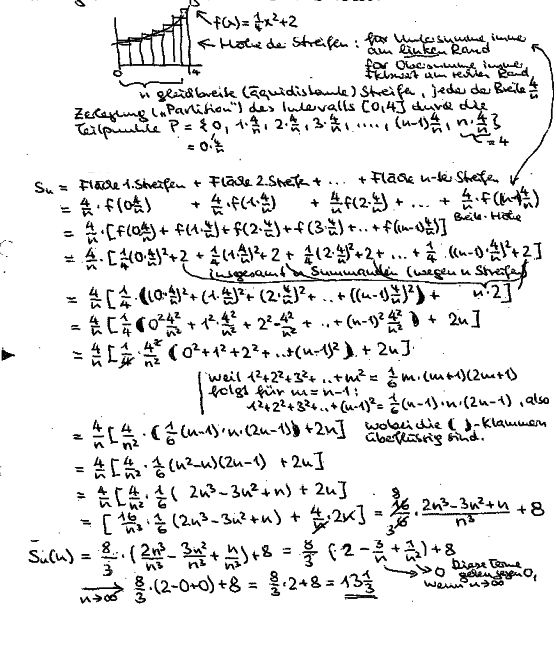 f(x)=¼x²+2
← Höhe der Streifen : für Untersumme immer
am linken Rand
für Obersumme immer
am rechten Rand
0 4
n gleichbreite (äquidistante) Streifen, jeder der Breite 4/n
Zerlegung („Partition“) des Intervalls [0,4] durch die
Teilpunkte P = {0, 1·4/n, 2·4/n, 3·4/n, ...., (n-1)4/n, n·4/n}
= 0·4/n =4
Sn = Fläche 1.Streifen + Fläche 2.Streifen + ... + Fläche n-ter Streifen
= 4/n · f(0·4/n) + 4/n · f(1·4/n) + 4/n f(2·4/n) + ... + 4/n · f((n-1)4/n)
Breite · Höhe
= 4/n · [f(0·4/n) + f(1·4/n) + f(2·4/n) + f(3·4/n) + ... + f((n-1)4/n)]
= 4/n · [¼(0·4/n)²+2 + ¼(1·4/n)²+2 + ¼(2·4/n)²+2 + ... + ¼·((n-1)·4/n)²+2]
insgesamt n Summanden (wegen n Streifen)
= 4/n [¼·((0·4/n)²+(1·4/n)²+(2·4/n)²+...+((n-1)4/n)²) + n·2]
= 4/n [¼(0²4²/n² + 1²·4²/n² + 2²·4²/n² + ... + (n-1)²4²/n²) + 2n]
= 4/n [¼·4²/n² (0²+1²+2²+...+(n-1)²) + 2n]
weil 1²+2²+3²+..+m² = 1/6 m·(m+1)(2m+1)
folgt für m=n-1:
1²+2²+3²+..+(n-1)² = 1/6(n-1)·n·(2n-1), also
= 4/n [4/n² · (1/6(n-1)·n·(2n-1)) + 2n] wobei die ( )-Klammern
überflüssig sind.
= 4/n [4/n² · 1/6 (n²-n)(2n-1) + 2n]
= 4/n [4/n² · 1/6 (2n³-3n²+n) + 2n]
= [16/n³ · 1/6 (2n³-3n²+n) + 4/n·2n] = 8 16/6 3 · (2n³-3n²+n)/n³ + 8
Su(n) = 8/3 · (2n³/n³ - 3n²/n³ + n/n³) + 8 = 8/3 (·2 - 3/n + 1/n²) + 8
→ 0 Diese Terme
gehen gegen 0,
wenn n→∞
→ n→∞ 8/3·(2-0+0)+8 = 8/3·2+8 = 13 1/3